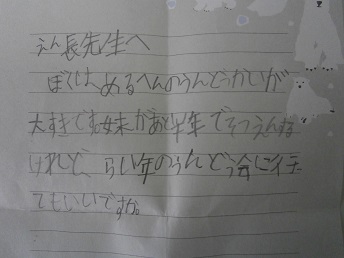 えん長先生へ
ぼくは、めるへんのうんどうかいが
大すきです。妹があと半年でそつえんする
けれど、らい年のうんどう会に行っ
てもいいですか。